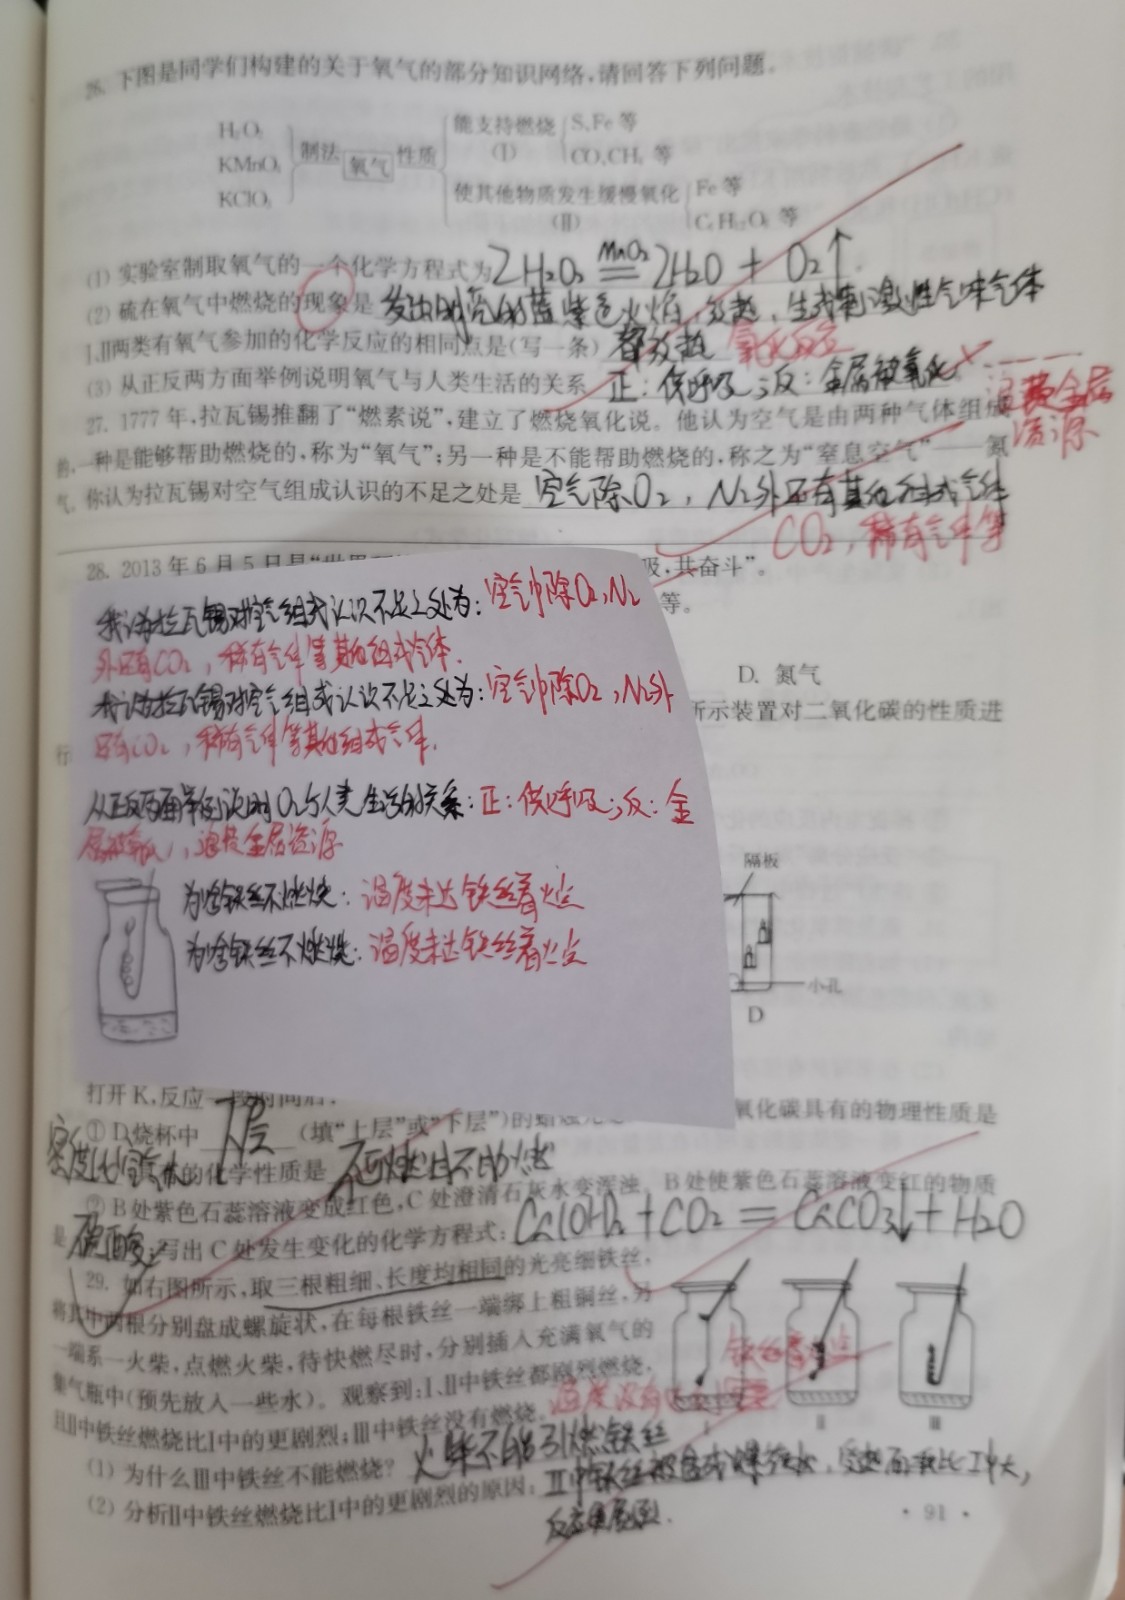 26. 下图是同学们构建的关于氧气的部分知识网络,请回答下列问题。
H₂O₂
KMnO₄
KClO₃
制法
氧气
性质
能支持燃烧
(Ⅰ)
S,Fe 等
CO,CH₄ 等
使其他物质发生缓慢氧化
(Ⅱ)
Fe 等
C₆H₁₂O₆ 等
(1) 实验室制取氧气的一个化学方程式为 2H₂O₂ MnO₂ == 2H₂O + O₂↑.
(2) 硫在氧气中燃烧的现象是 发出明亮的蓝紫色火焰,放热,生成刺激性气味气体
Ⅰ、Ⅱ两类有氧气参加的化学反应的相同点是(写一条) 都放热 氧化反应
(3) 从正反两方面举例说明氧气与人类生活的关系 正:供呼吸;反:金属被氧化
浪费金属
资源
27. 1777 年,拉瓦锡推翻了“燃素说”,建立了燃烧氧化说。他认为空气是由两种气体组成
的,一种是能够帮助燃烧的,称为“氧气”;另一种是不能帮助燃烧的,称之为“窒息空气”——氮
气。你认为拉瓦锡对空气组成认识的不足之处是 空气除O₂,N₂外还有其他组成气体
CO₂,稀有气体等
28. 2013 年 6 月 5 日是“世界
吸,共奋斗”。
等。
D. 氮气
所示装置对二氧化碳的性质进
行
我认为拉瓦锡对空气组成认识不足之处为:空气中除O₂,N₂
外还有CO₂,稀有气体等其他组成气体.
我认为拉瓦锡对空气组成认识不足之处为:空气中除O₂,N₂外
还有CO₂,稀有气体等其他组成气体.
从正反两面举例说明O₂与人类生活的关系:正:供呼吸;反:金
属被氧化,浪费金属资源
为啥铁丝不燃烧:温度未达铁丝着火点
为啥铁丝不燃烧:温度未达铁丝着火点
隔板
小孔
D
打开 K,反应一段时间后:
① D 烧杯中 下层 (填“上层”或“下层”)的蜡烛先
氧化碳具有的物理性质是
密度比空气大
的化学性质是 不可燃且不助燃
② B 处紫色石蕊溶液变成红色,C 处澄清石灰水变浑浊。B 处使紫色石蕊溶液变红的物质
是 碳酸;写出 C 处发生变化的化学方程式: Ca(OH)₂+CO₂=CaCO₃↓+H₂O
29. 如右图所示,取三根粗细、长度均相同的光亮细铁丝,
将其中两根分别盘成螺旋状,在每根铁丝一端绑上粗铜丝,另
一端系一火柴,点燃火柴,待快燃尽时,分别插入充满氧气的
集气瓶中(预先放入一些水)。观察到:Ⅰ、Ⅱ中铁丝都剧烈燃烧,
且Ⅱ中铁丝燃烧比Ⅰ中的更剧烈;Ⅲ中铁丝没有燃烧。
温度没有达到
铁丝着火点
Ⅰ
Ⅱ
Ⅲ
(1) 为什么Ⅲ中铁丝不能燃烧? 火柴不能引燃铁丝
(2) 分析Ⅱ中铁丝燃烧比Ⅰ中的更剧烈的原因: Ⅱ中铁丝被盘成螺旋状,受热面积比Ⅰ中大,
反应更剧烈.
· 91 ·